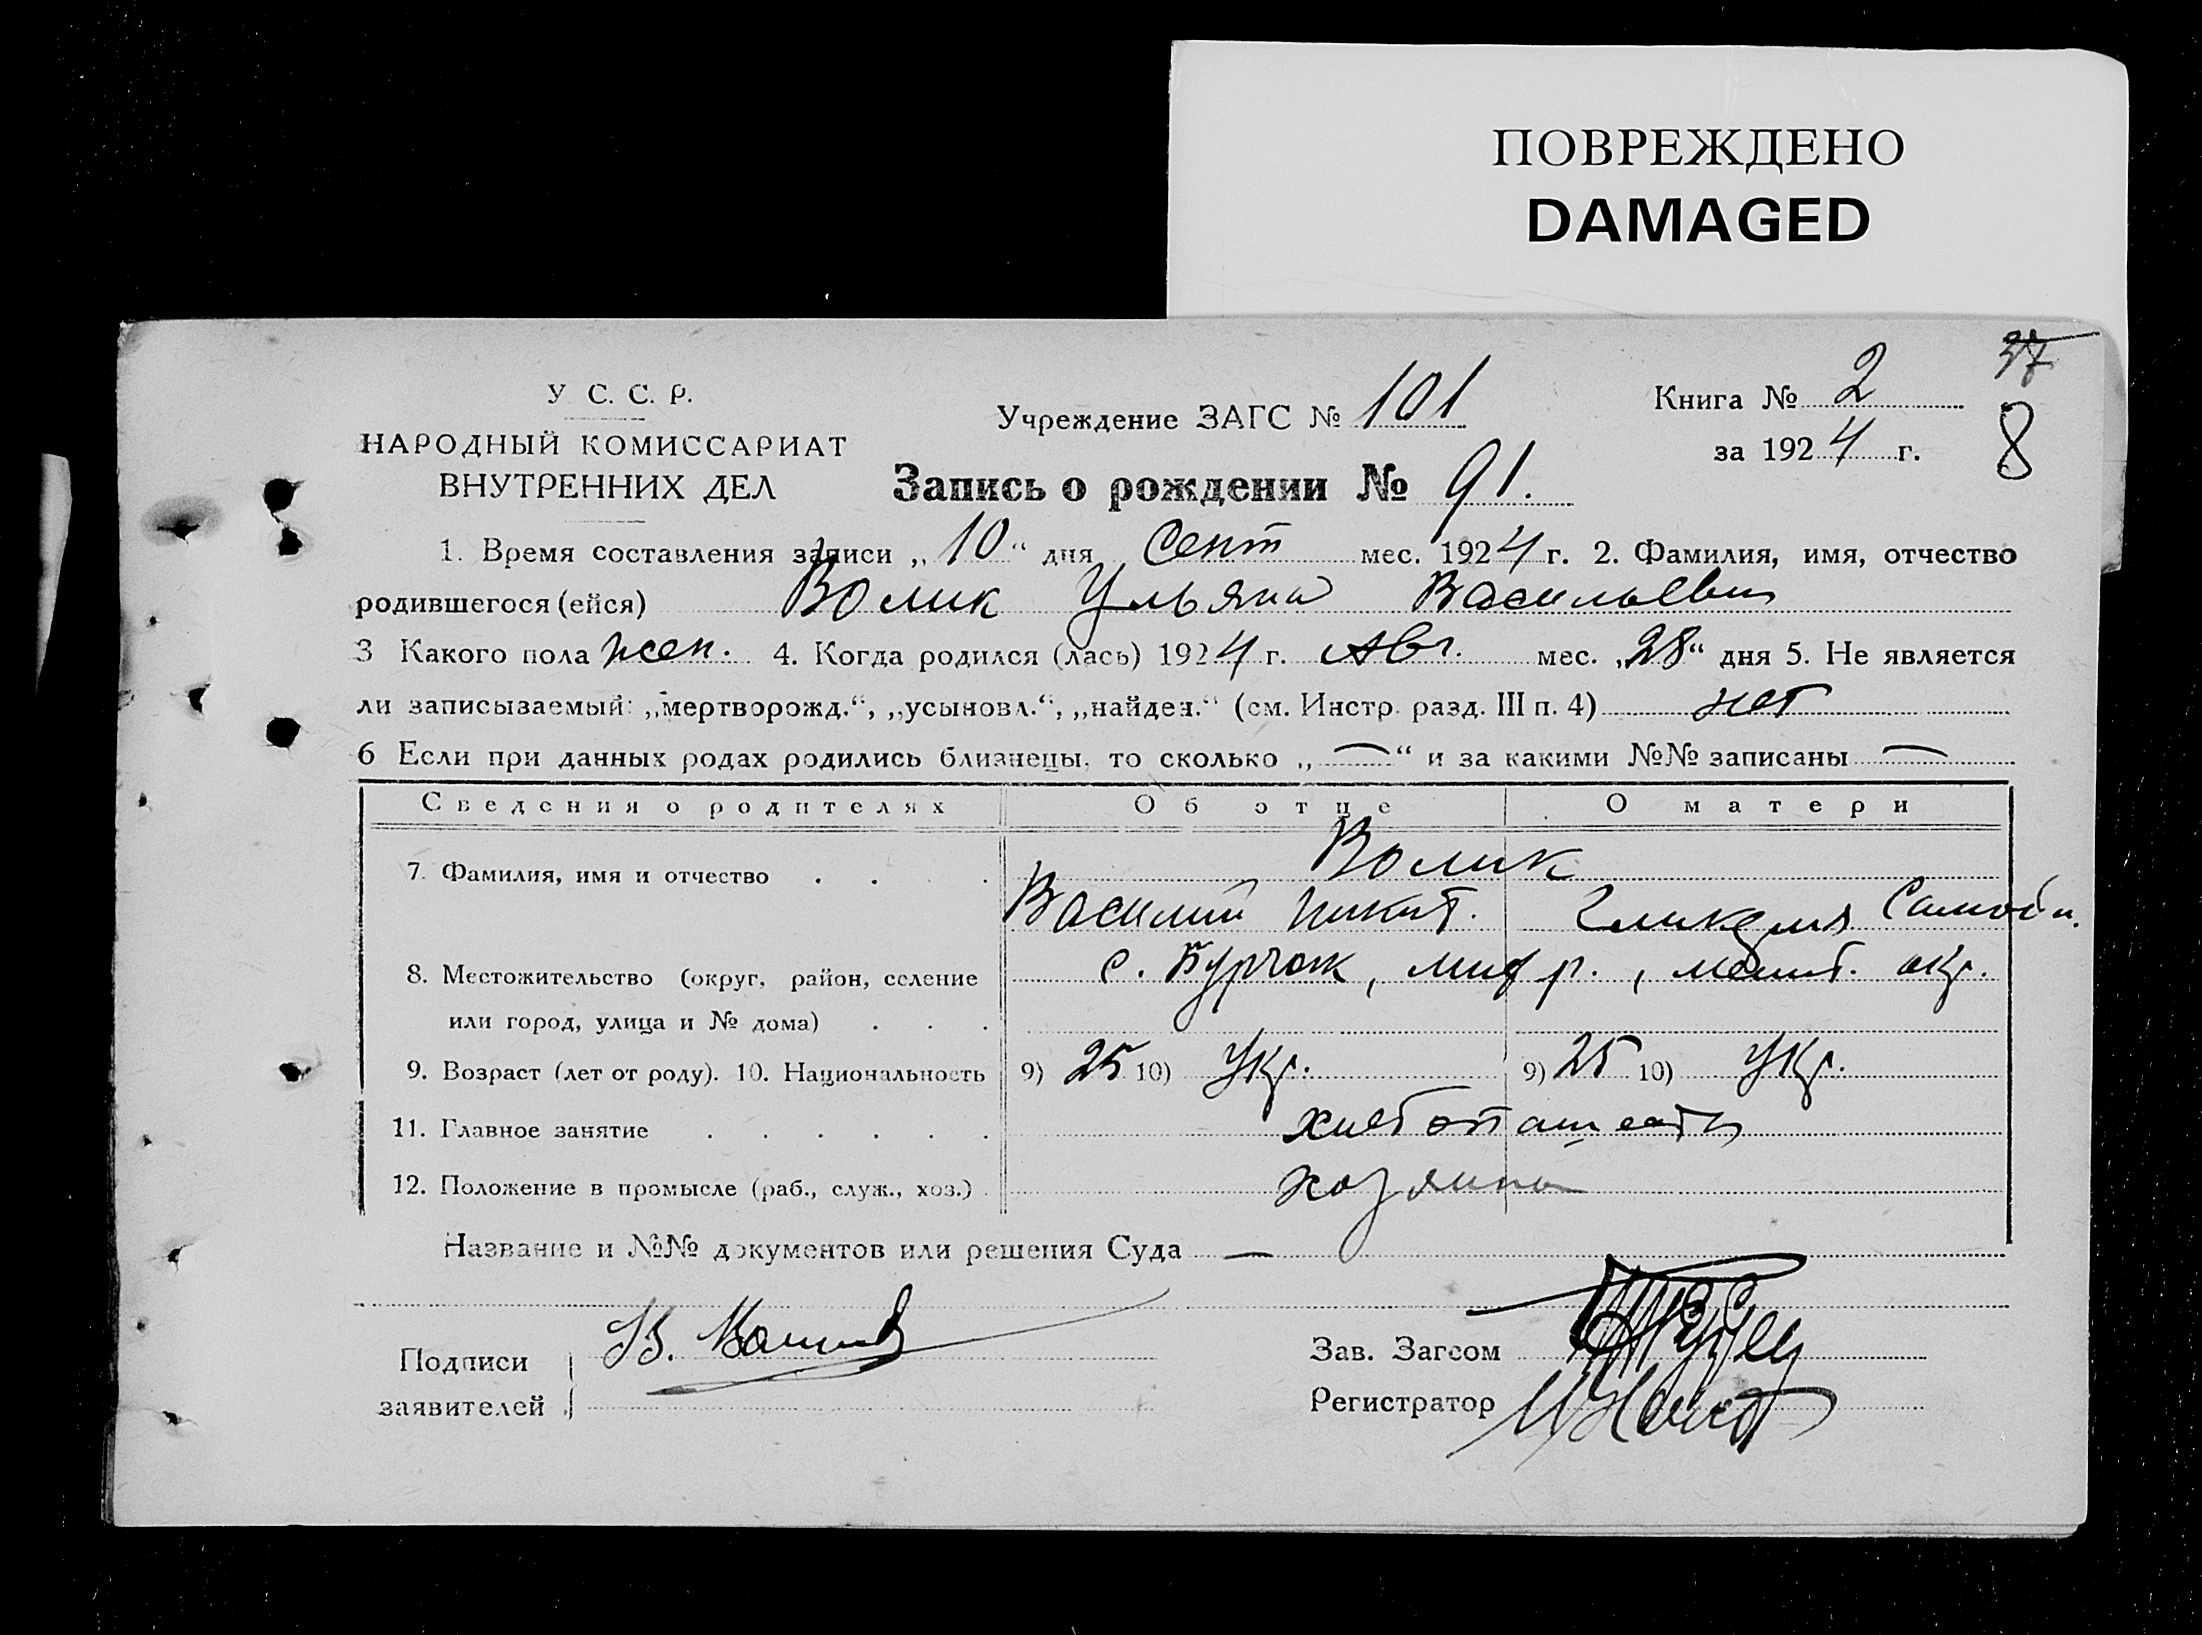 ПОВРЕЖДЕНО
DAMAGED
37
8
У С. С. Р.
НАРОДНЫЙ КОМИССАРИАТ
ВНУТРЕННИХ ДЕЛ
Учреждение ЗАГС № 101
Книга № 2
за 1924 г.
Запись о рождении № 91.
1. Время составления записи „10“ дня Сент мес. 1924 г. 2. Фамилия, имя, отчество
родившегося (ейся) Волик Ульяна Васильевн
3 Какого пола жен. 4. Когда родился (лась) 1924 г. Авг. мес. „28“ дня 5. Не является
ли записываемый: „мертворожд.“, „усыновл.“, „найден.“ (см. Инстр. разд. III п. 4) нет
6 Если при данных родах родились близнецы, то сколько „—“ и за какими №№ записаны —
Сведения о родителях Об отце О матери
7. Фамилия, имя и отчество . . . . Волик
Василий Никит. Гликерия Самойл.
8. Местожительство (округ, район, селение с. Бурчак, мих р., мелит. окр.
или город, улица и № дома) . . .
9. Возраст (лет от роду). 10. Национальность 9) 25 10) Укр. 9) 25 10) Укр.
11. Главное занятие . . . . . . хлебопашест
12. Положение в промысле (раб., служ., хоз.) . хозяин
Название и №№ документов или решения Суда —
Подписи
заявителей
В. Волик
Зав. Загсом
Регистратор